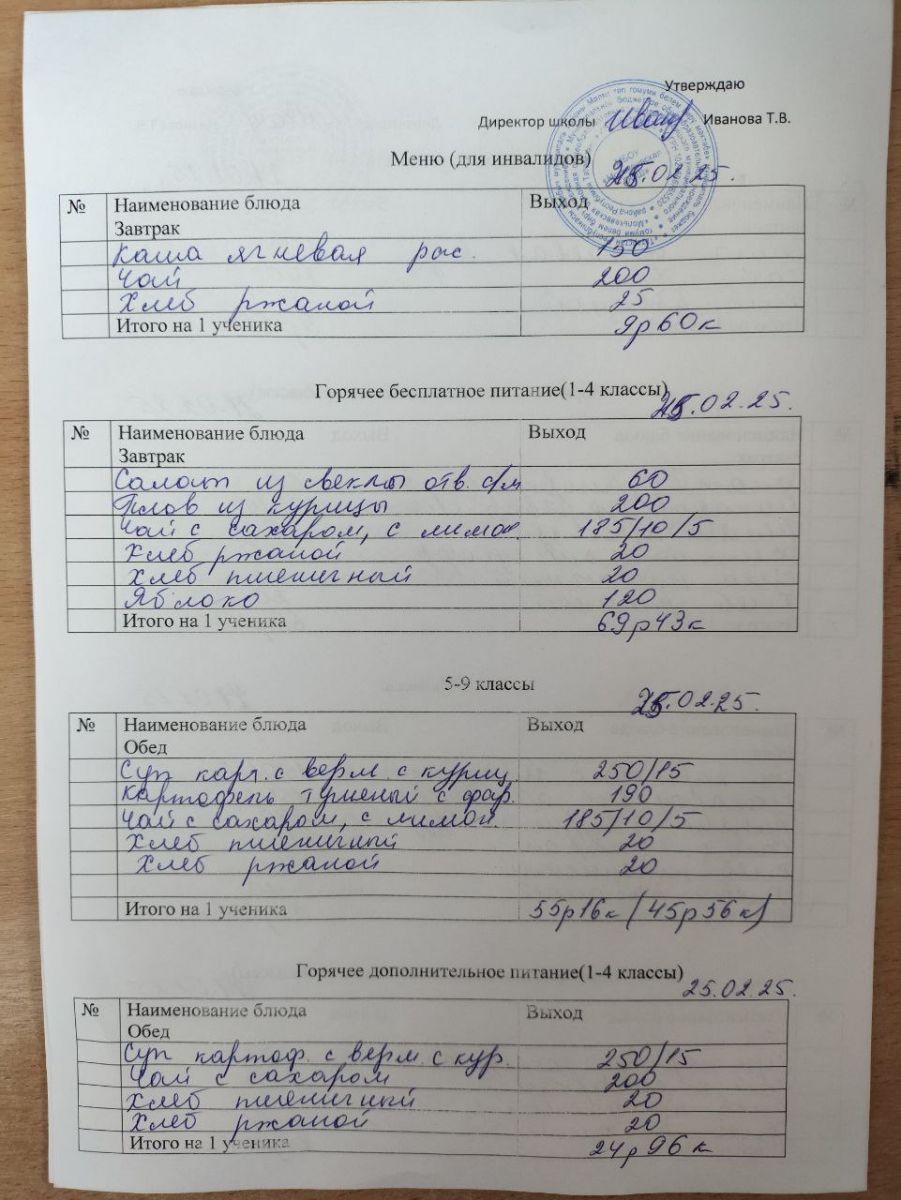 Утверждаю
Директор школы Иванова Т.В.
Меню (для инвалидов)
25.02.25.
№ Наименование блюда Выход
Завтрак
Каша ягневая рас. 150
Чай 200
Хлеб ржаной 25
Итого на 1 ученика 9р60к
Горячее бесплатное питание(1-4 классы)
25.02.25.
№ Наименование блюда Выход
Завтрак
Салат из свеклы отв. с/м 60
Плов из курицы 200
Чай с сахаром, с лимон. 185/10/5
Хлеб ржаной 20
Хлеб пшеничный 20
Яблоко 120
Итого на 1 ученика 69р43к
5-9 классы
25.02.25.
№ Наименование блюда Выход
Обед
Суп карт. с верм. с куриц. 250/15
Картофель тушеный с фар. 190
Чай с сахаром, с лимон. 185/10/5
Хлеб пшеничный 20
Хлеб ржаной 20
Итого на 1 ученика 55р16к (45р56к)
Горячее дополнительное питание(1-4 классы)
25.02.25.
№ Наименование блюда Выход
Обед
Суп картоф. с верм. с кур. 250/15
Чай с сахаром 200
Хлеб пшеничный 20
Хлеб ржаной 20
Итого на 1 ученика 24р96к